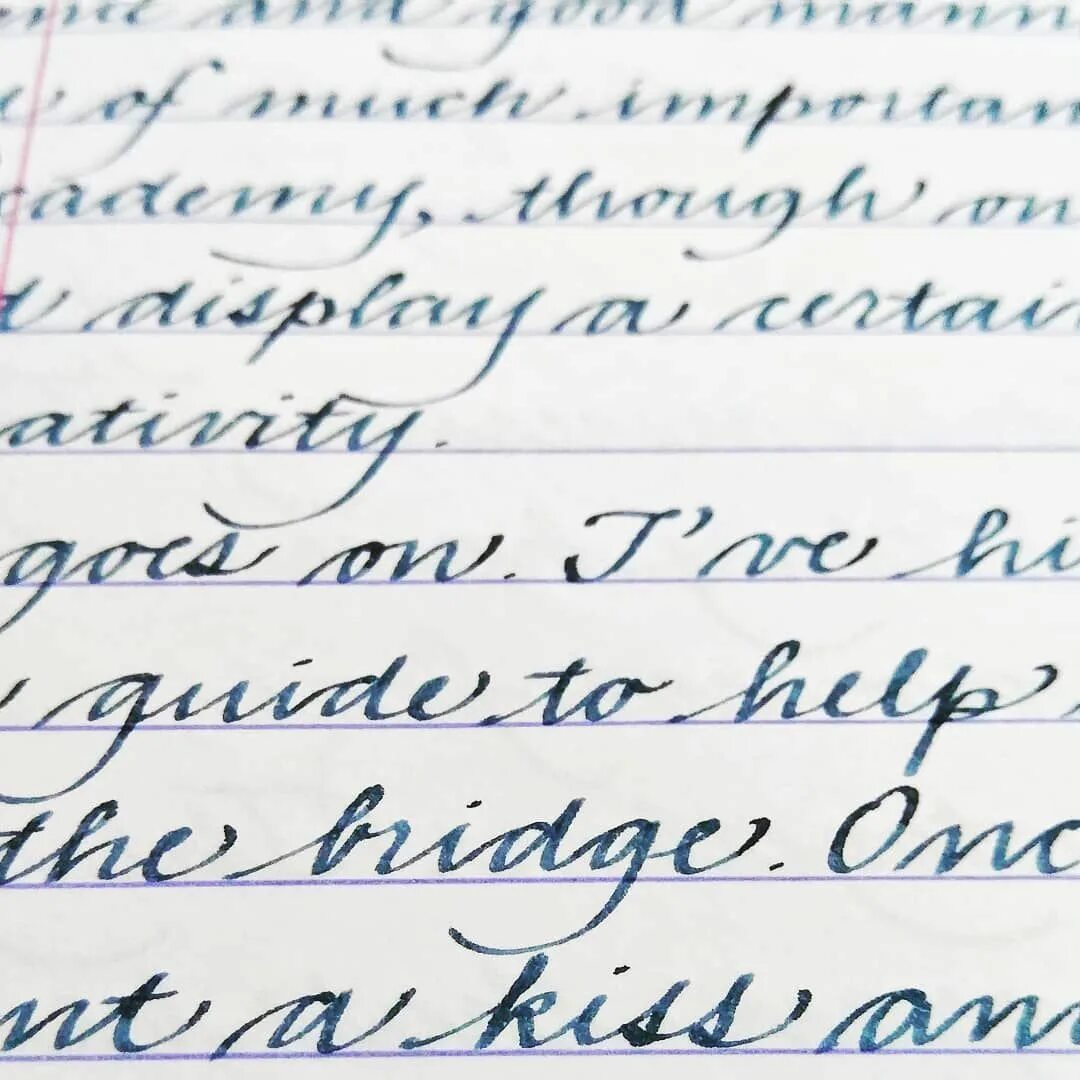 and good mann
of much importan
cademy, though on
d display a certain
ativity.
goes on. I've hi
guide to help
the bridge. Onc
nt a kiss and